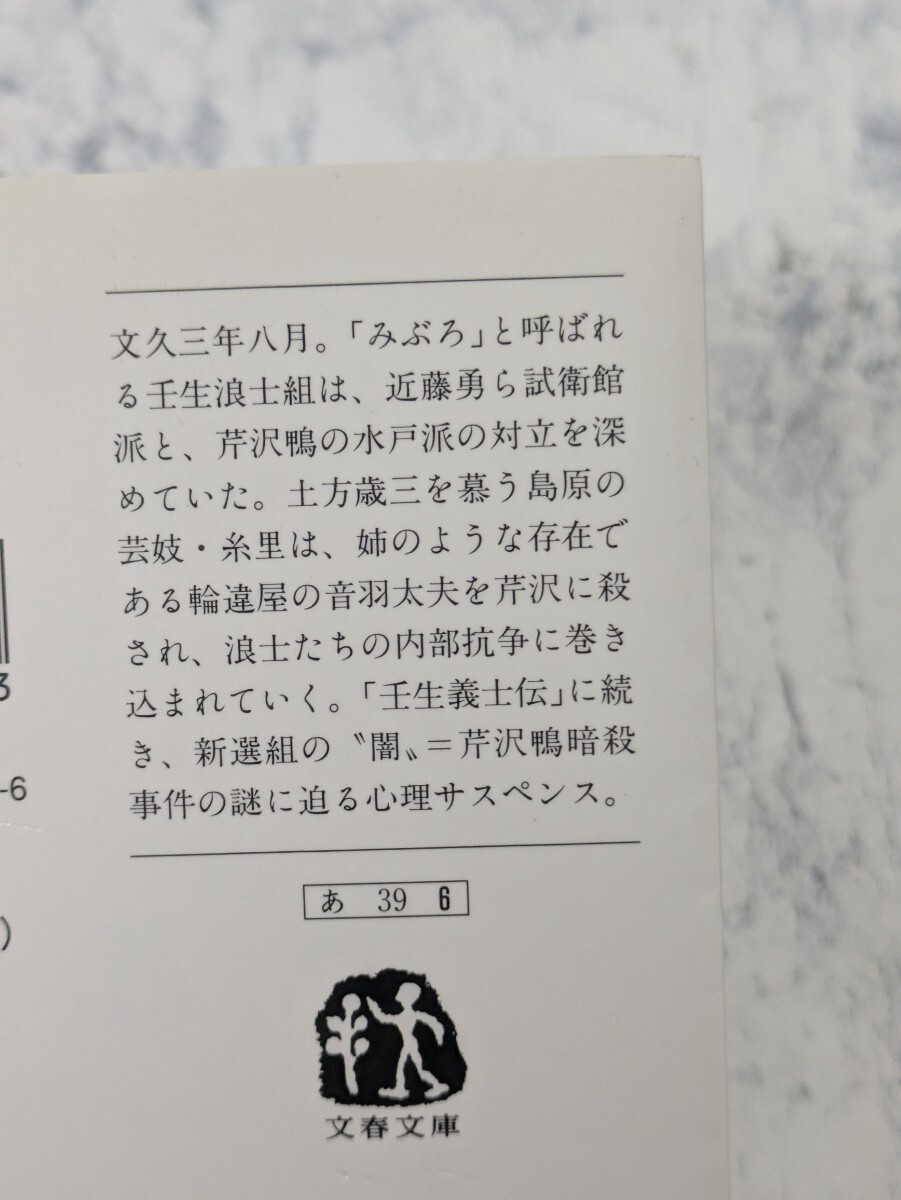 文久三年八月。「みぶろ」と呼ばれ
る壬生浪士組は、近藤勇ら試衛館
派と、芹沢鴨の水戸派の対立を深
めていた。土方歳三を慕う島原の
芸妓・糸里は、姉のような存在で
ある輪違屋の音羽太夫を芹沢に殺
され、浪士たちの内部抗争に巻き
込まれていく。「壬生義士伝」に続
き、新選組の〝闇〟＝芹沢鴨暗殺
事件の謎に迫る心理サスペンス。
3
-6
)
あ 39 6
文春文庫